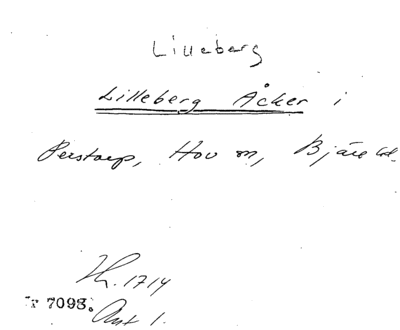 Lilleberg
Lilleberg Åcker i
Perstorp, Hov sn, Bjäre hd.
Lh. 1714
7093.
Ant 1.